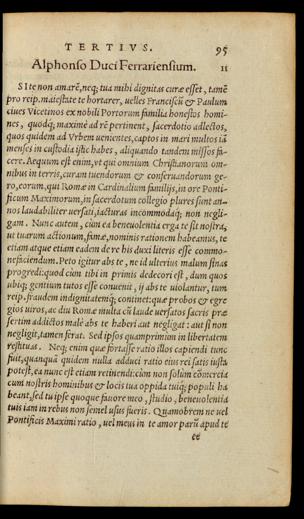 TERTIVS. 95
Alphonso Duci Ferrariensium. 11
SI te non amarē, neq; tua mihi dignitas curæ esset, tamē
pro reip. maiestate te hortarer, uelles Franciscū & Paulum
ciues Vicetinos ex nobili Portorum familia honestos homi-
nes, quodq; maximè ad rē pertinent, sacerdotio adlectos,
quos quidem ad Vrbem uenientes, captos in mari multos iā
menses in custodia istic habes, aliquando tandem missos fa-
cere. Aequum est enim, ut qui omnium Christianorum om-
nibus in terris, curam tuendorum & conseruandorum ge-
ro, eorum, qui Romæ in Cardinalium familijs, in ore Ponti-
ficum Maximorum, in sacerdotum collegio plures sunt an-
nos laudabiliter uersati, iacturas incommodaq; non negli-
gam. Nunc autem, cùm ea beneuolentia erga te sit nostra,
ut tuarum actionum, famæ, nominis rationem habeamus, te
etiam atque etiam eadem de re his duxi literis esse commo-
nefaciendum. Peto igitur abs te, ne id ulterius malum sinas
progredi: quod cùm tibi in primis dedecori est, dum quos
ubiq; gentium tutos esse conuenit, ij abs te uiolantur, tum
reip. fraudem indignitatemq; continet: quæ probos & egre
gios uiros, ac diu Romæ multa cū laude uersatos sacris præ
sertim addictos malè abs te haberi aut negligat: aut si non
negligit, tamen ferat. Sed ipsos quamprimum in libertatem
restituas. Neq; enim quæ fortasse ratio illos capiendi tunc
fuit, quanquā quidem nulla adduci ratio eius rei satis iusta
potest, ea nunc est etiam retinendi: cùm non solùm cōmercia
cum nostris hominibus & locis tua oppida tuiq; populi ha
beant, sed tu ipse quoque fauore meo, studio, beneuolentia
tuis iam in rebus non semel usus fueris. Quamobrem ne uel
Pontificis Maximi ratio, uel meus in te amor parū apud te